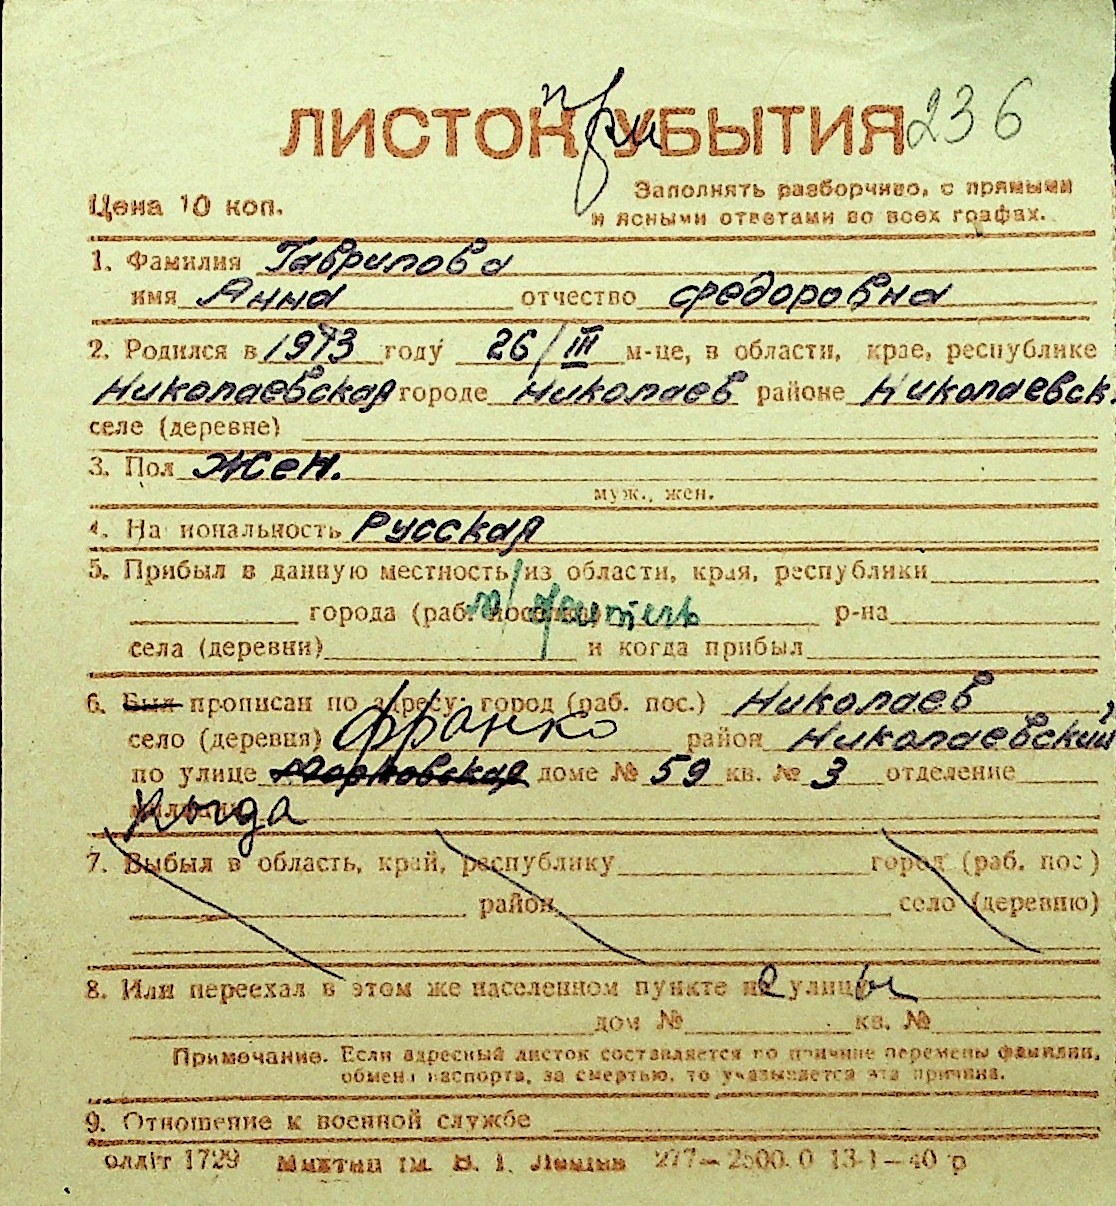 при
ЛИСТОК УБЫТИЯ 236
Цена 10 коп.
Заполнять разборчиво, с прямыми
и ясными ответами во всех графах.
1. Фамилия Гаврилова
имя Анна отчество Федоровна
2. Родился в 1913 году 26/III м-це, в области, крае, республике
Николаевская городе Николаев районе Николаевск.
селе (деревне)
3. Пол Жен.
муж., жен.
4. Национальность Русская
5. Прибыл в данную местность из области, края, республики
города (раб. р-на
села (деревни) и когда прибыл
6. Был прописан по адресу: город (раб. пос.) Николаев,
село (деревня) Франко район Николаевский
по улице доме № 59 кв. № 3 отделение
милиции
7. Выбыл в область, край, республику город (раб. пос)
район село (деревню)
8. Или переехал в этом же населенном пункте улицы
дом № кв. №
Примечание. Если адресный листок составляется по причине перемены фамилии,
обмена паспорта, за смертью, то указывается эта причина.
9. Отношение к военной службе
олліт 1729 277—2500.0 13-1—40 р